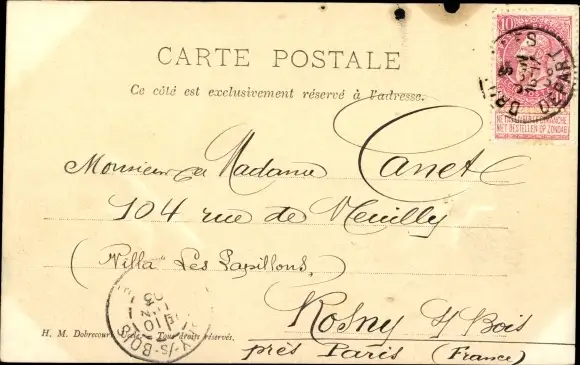 CARTE POSTALE
Ce côté est exclusivement réservé à l'adresse.
10
NE PAS LIVRER LE DIMANCHE
NIET BESTELLEN OP ZONDAG
DEPART
Monsieur et Madame Canet
104 rue de Neuilly
(Villa "Les Papillons)
Rosny s/ Bois
près Paris (France)
H. M. Dobrecourt, Tous droits réservés.
Y-/S-BOIS